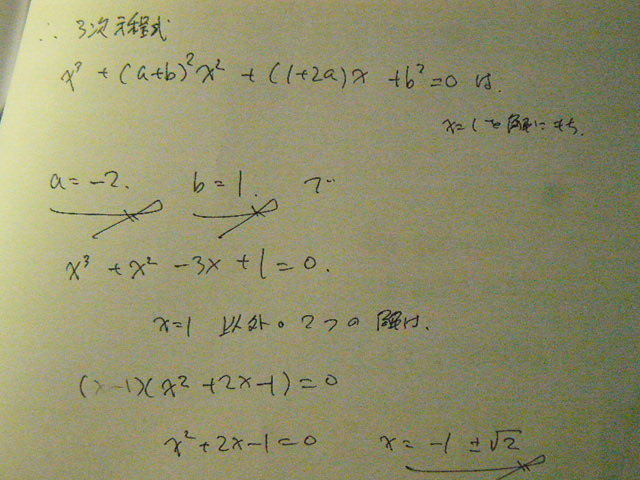 ∴ 3次方程式
x³ + (a+b)²x² + (1+2a)x + b² = 0 は.
x=1を解にもち.
a = -2. b = 1. で
x³ + x² - 3x + 1 = 0.
x=1 以外の2つの解は.
(x-1)(x² + 2x - 1) = 0
x² + 2x - 1 = 0 x = -1 ± √2